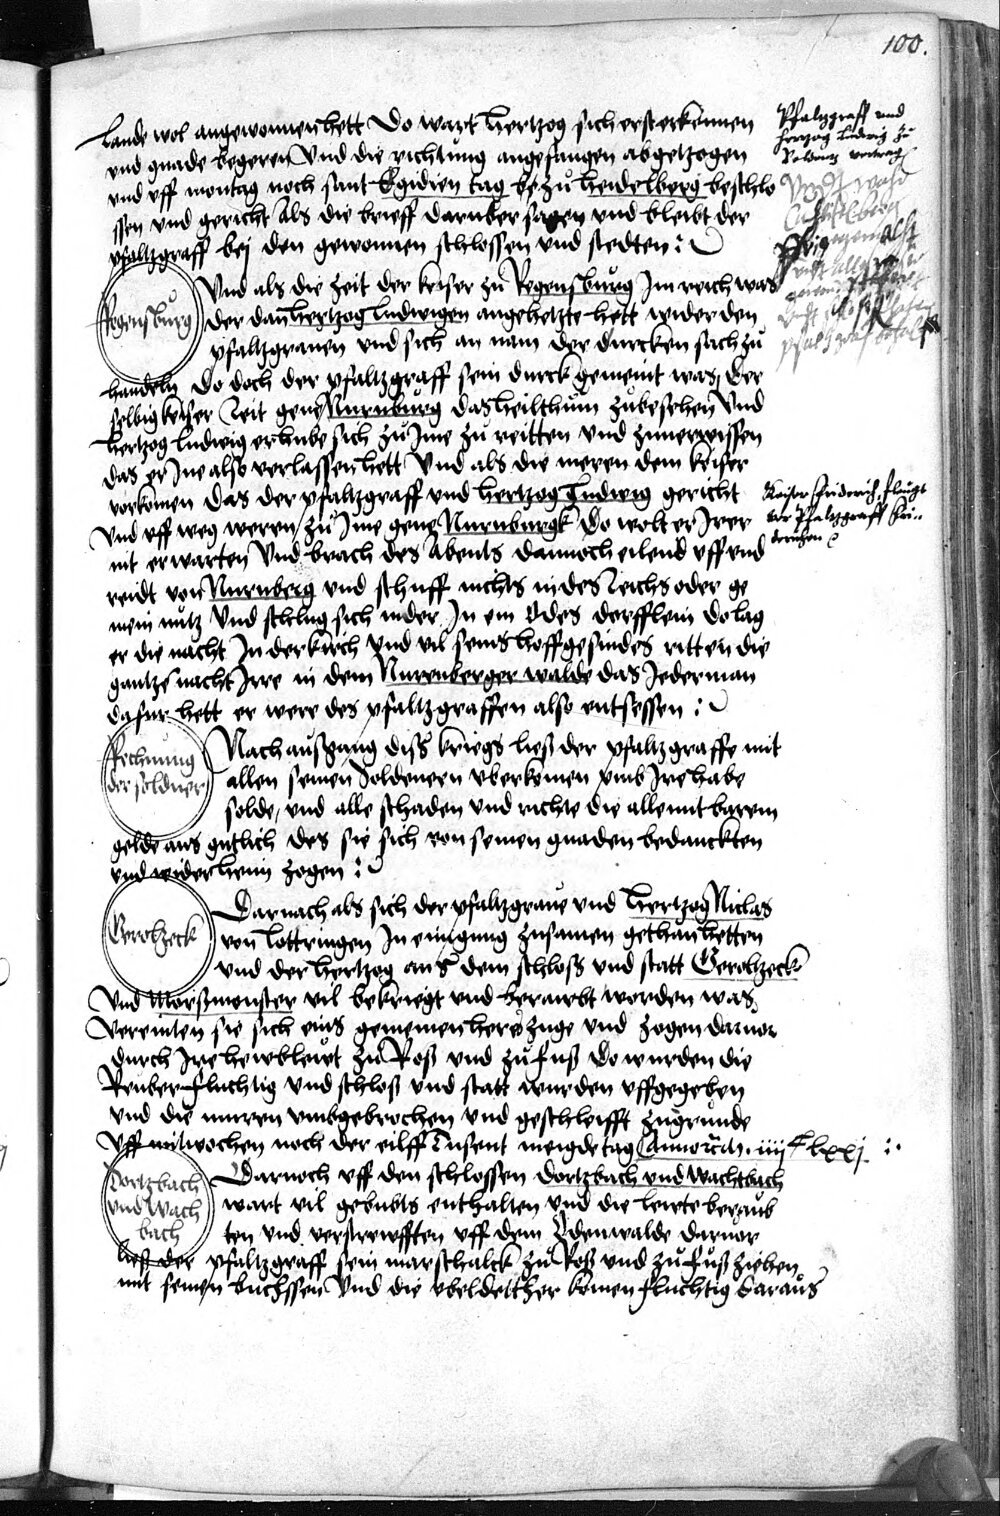 100.
lande wol angewonnen hett Do wart hertzog sich ersterkennen
und gnade begeren Und die richtung angefangen abgetzogen
und uff montag noch sant Egidien tag bezu heidelberg beschlo
ssen und gericht Als die brieff daruber sagen und bleibt der
pfaltzgraff bej den gewonnen schlossen und stedten :
Pfaltzgraff und
Hertzog Ludwig zu
Regensburg
Und als die zeit der keiser zu Regensburg Im reich was
der dan hertzog Ludwigen angehetzte hett wider den
pfaltzgrauen und sich an nam der durcken sach zu
handeln Do doch der pfaltzgraff sein durck gemeint was, Der
selbig keiser Reit gene Nurnburg das heilthum zubesehen Und
hertzog Ludwig erhube sich zu Ime zu reitten und zuuerwissen
das er Ine also verlassen hett Und als die meren dem keiser
vorkomen das der pfaltzgraff und hertzog Ludwig gericht
Und uff weg weren zu Ime gene Nurnburgk Do wolt er Irer
nit erwarten Und brach des Abents dannoch eilend uff und
reidt von Nurnberg und schuff nichts in des Reichs oder ge
mein nutz Und schlug sich nider In ein Odes derfflein Do lag
er die nacht In der kirch Und vil seins hoffgesindes ritten die
gantze nacht Irre in dem Nurenberger walde das Jederman
dafur hett er were des pfaltzgraffen also entsessen :
Kaiser Friderich fleugt
vor Pfaltzgraff Fri..
derichen
Rechnung
der soldner
Nach außgang diß kriegs ließ der pfaltzgraffe mit
allen seinen Soldenern uberkomen umb Ire habe
solde, und alle schaden und richte die alle mit barem
gelde aus gutlich des sie sich von seinen gnaden bedanckten
und wider heim zogen :
Gerolzeck
Darnach als sich der pfaltzgraue und Hertzog Niclas
von Lottringen In einigung zusamen gethan hetten
und der hertzog auß dem schloß und statt Geroltzeck
Und Morßmonster vil bekriegt und beraubt worden was
Vereinten sie sich eins gemeinen herezuge und zogen daruor
durch Ire hewbtleut zu Roß und zu fuß Do wurden die
Reuber fluchtig und schloß und statt wurden uffgegeben
und die muren umbgebrochen und geschleifft zu grunde
Uff mitwochen noch der eilff Tusent meigde tag Anno
Dortzbach
und Wach
bach
Darnoch uff den schlossen Dortzbach und Wachbach
wart vil gebubts enthalten und die leute beraub
ten und verstrewfften uff dem Odenwalde daruor
ließ der pfaltzgraff sein marschalck zu Roß und zu fuß ziehen
mit seinen buchssen Und die ubeldetther komen fluchtig daraus